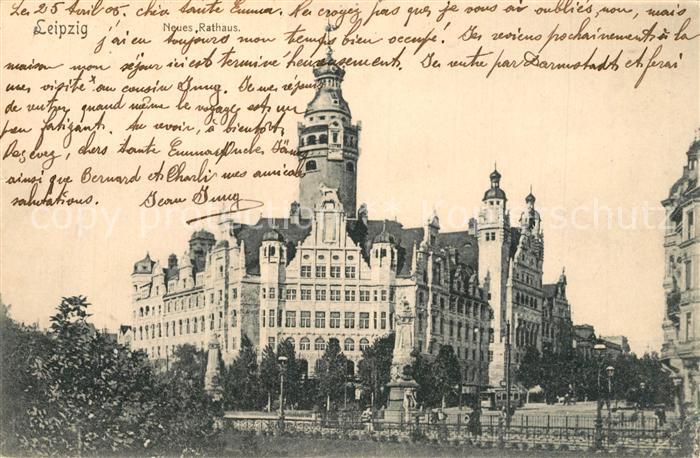 Le 25 Avril 05. chère tante Emma. Ne croyez pas que je vous ai oubliés, non, mais
Leipzig
Neues Rathaus.
j'ai eu toujours mon temps bien occupé. Je reviens prochainement à la
maison mon séjour ici est terminé heureusement. Je rentre par Darmstadt et ferai
une visite au cousin Jung. Je me réjouis
de rentrer, quand même le voyage est un
peu fatigant. Au revoir, à bientôt,
Recevez, chers tante Emma
ainsi que Bernard et Charli mes amicales
salutations. Jean Jung
copyright by Ansichtskarten-Lexikon Kopierschutz